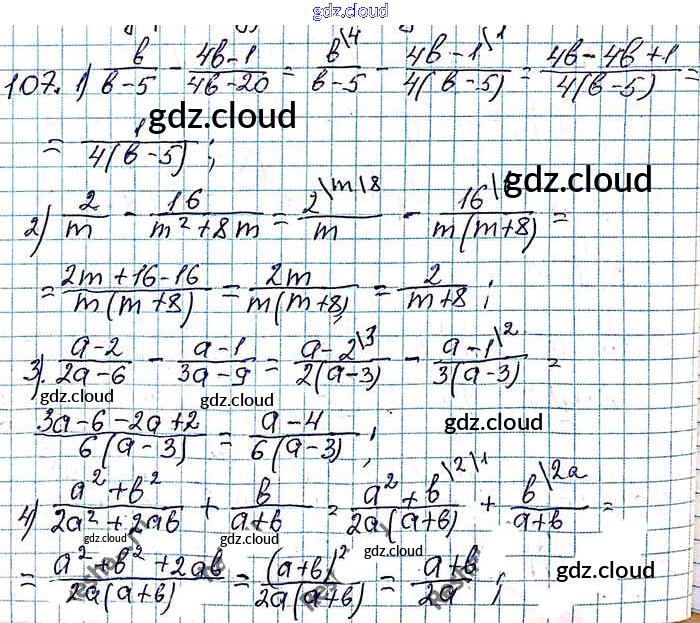 gdz.cloud
107. 1) в/(в-5) - (4в-1)/(4в-20) = в\4/(в-5) - (4в-1\1)/(4(в-5)) = (4в-4в+1)/(4(в-5)) =
gdz.cloud
= 1/(4(в-5)) ;
gdz.cloud
2) 2/m - 16/(m²+8m) = 2\m\8/m - 16\/(m(m+8)) =
= (2m+16-16)/(m(m+8)) = 2m/(m(m+8)) = 2/(m+8) ;
3). (a-2)/(2a-6) - (a-1)/(3a-9) = (a-2\3)/(2(a-3)) - (a-1\2)/(3(a-3)) =
gdz.cloud gdz.cloud
(3a-6-2a+2)/(6(a-3)) = (a-4)/(6(a-3)) ;
gdz.cloud
4) (a²+в²)/(2a²+2ав) + в/(а+в) = (a²+в\2\1)/(2a(a+в)) + в\2a/(а+в) =
gdz.cloud gdz.cloud
= (a²+в²+2ав)/(2a(a+в)) = (а+в)²/(2a(a+в)) = (а+в)/2a ;
gdz.cloud